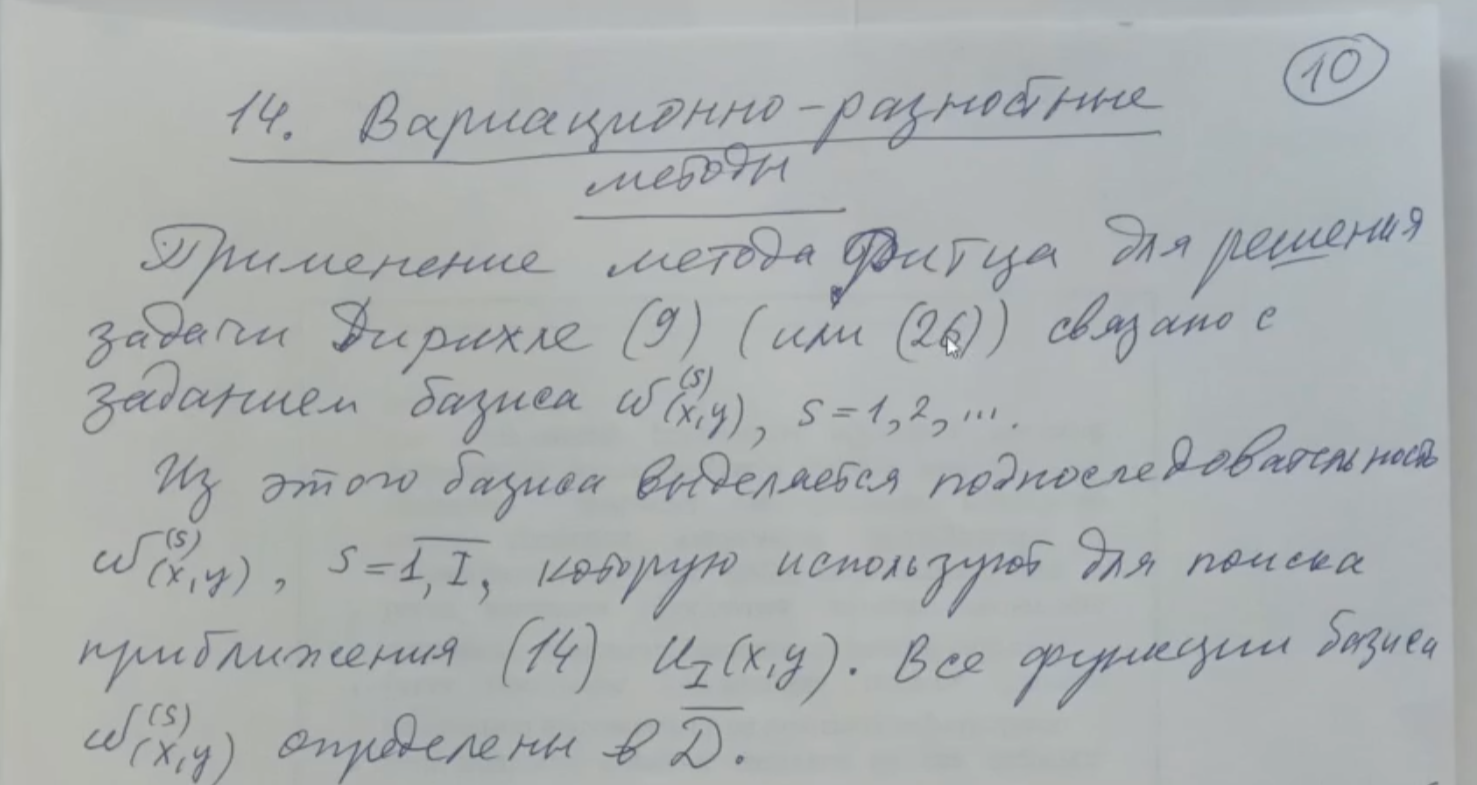 10
14. Вариационно-разностные
методы
Применение метода Ритца для решения
задачи Дирихле (9) (или (26)) связано с
заданием базиса ω^(s)(x,y), s=1,2,....
Из этого базиса выделяется подпоследовательность
ω^(s)(x,y), s=\overline{1,I}, которую используют для поиска
приближения (14) u_I(x,y). Все функции базиса
ω^(s)(x,y) определены в \overline{D}.